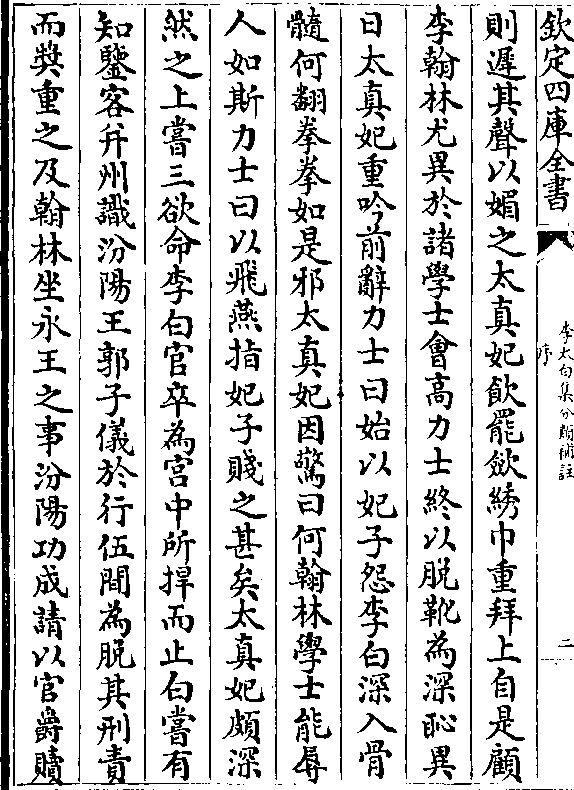 欽定四庫全書
李太白集分類補註
序
二
則遲其聲以媚之太真妃飲罷斂綉巾重拜上自是顧
李翰林尤異於諸學士會高力士終以脫靴為深恥異
日太真妃重吟前辭力士曰始以妃子怨李白深入骨
髓何翻拳拳如是邪太真妃因驚曰何翰林學士能辱
人如斯力士曰以飛燕指妃子賤之甚矣太真妃頗深
然之上嘗三欲命李白官卒為宮中所捍而止白嘗有
知鑒客并州識汾陽王郭子儀於行伍間為脫其刑責
而奬重之及翰林坐永王之事汾陽功成請以官爵贖